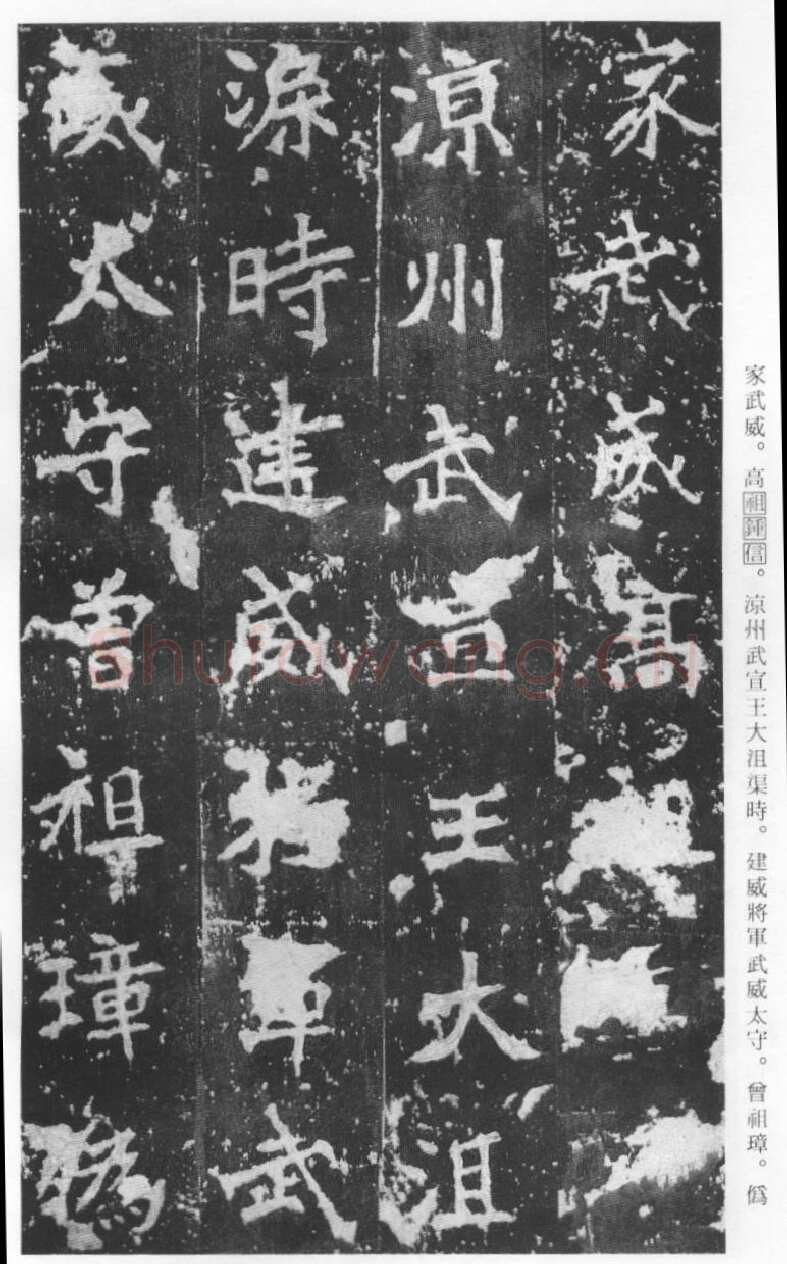 家武威。高祖鍾信。涼州武宣王大沮渠時。建威將軍武威太守。曾祖璋。僞
家武威高
涼州武宣王大沮
渠時建威將軍武
威太守曾祖璋僞
Shufawang.CN